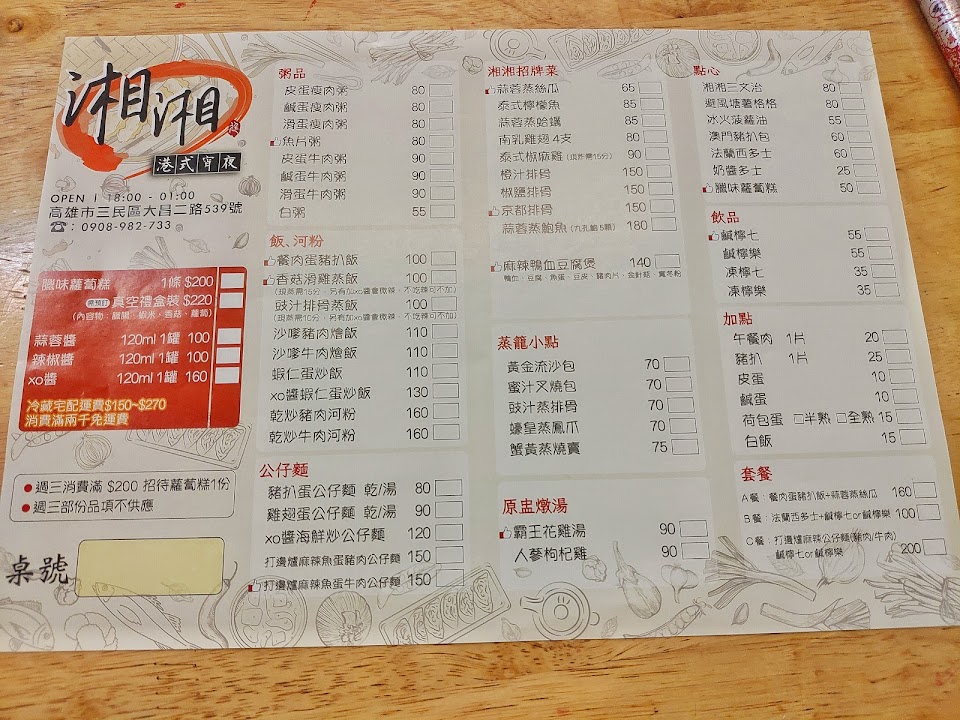 湘湘
港式宵夜
OPEN | 18:00 - 01:00
高雄市三民區大昌二路539號
☎：0908-982-733
臘味蘿蔔糕 1條 $200
需預訂 真空禮盒裝 $220
(內容物：臘腸、蝦米、香菇、蘿蔔)
蒜蓉醬 120ml 1罐 100
辣椒醬 120ml 1罐 100
xo醬 120ml 1罐 160
冷藏宅配運費$150~$270
消費滿兩千免運費
●週三消費滿 $200 招待蘿蔔糕1份
●週三部份品項不供應
桌號
粥品
皮蛋瘦肉粥 80
鹹蛋瘦肉粥 80
滑蛋瘦肉粥 80
魚片粥 80
皮蛋牛肉粥 90
鹹蛋牛肉粥 90
滑蛋牛肉粥 90
白粥 55
飯、河粉
餐肉蛋豬扒飯 100
香菇滑雞蒸飯 100
(現蒸需15分，另有加xo醬會微辣，不吃辣可不加)
豉汁排骨蒸飯 100
(現蒸需10分，另有加xo醬會微辣，不吃辣可不加)
沙嗲豬肉燴飯 110
沙嗲牛肉燴飯 110
蝦仁蛋炒飯 110
xo醬蝦仁蛋炒飯 130
乾炒豬肉河粉 160
乾炒牛肉河粉 160
公仔麵
豬扒蛋公仔麵 乾/湯 80
雞翅蛋公仔麵 乾/湯 90
xo醬海鮮炒公仔麵 120
打邊爐麻辣魚蛋豬肉公仔麵 150
打邊爐麻辣魚蛋牛肉公仔麵 150
湘湘招牌菜
蒜蓉蒸絲瓜 65
泰式檸檬魚 85
蒜蓉蒸蛤蠣 85
南乳雞翅 4支 80
泰式椒麻雞 (現炸需15分) 90
橙汁排骨 150
椒鹽排骨 150
京都排骨 150
蒜蓉蒸鮑魚 (九孔鮑 5顆) 180
麻辣鴨血豆腐煲 140
鴨血、豆腐、魚蛋、豆皮、豬肉片、金針菇、寬冬粉
蒸籠小點
黃金流沙包 70
蜜汁叉燒包 70
豉汁蒸排骨 70
蠔皇蒸鳳爪 70
蟹黃蒸燒賣 75
原盅燉湯
霸王花雞湯 90
人蔘枸杞雞 90
點心
湘湘三文治 80
避風塘薯格格 80
冰火菠蘿油 55
澳門豬扒包 60
法蘭西多士 60
奶醬多士 25
臘味蘿蔔糕 50
飲品
鹹檸七 55
鹹檸樂 55
凍檸七 35
凍檸樂 35
加點
午餐肉 1片 20
豬扒 1片 25
皮蛋 10
鹹蛋 10
荷包蛋 □半熟 □全熟 15
白飯 15
套餐
A餐：餐肉蛋豬扒飯+蒜蓉蒸絲瓜 160
B餐：法蘭西多士+鹹檸七or鹹檸樂 100
C餐：打邊爐麻辣公仔麵(豬肉/牛肉)
鹹檸七or鹹檸樂 200